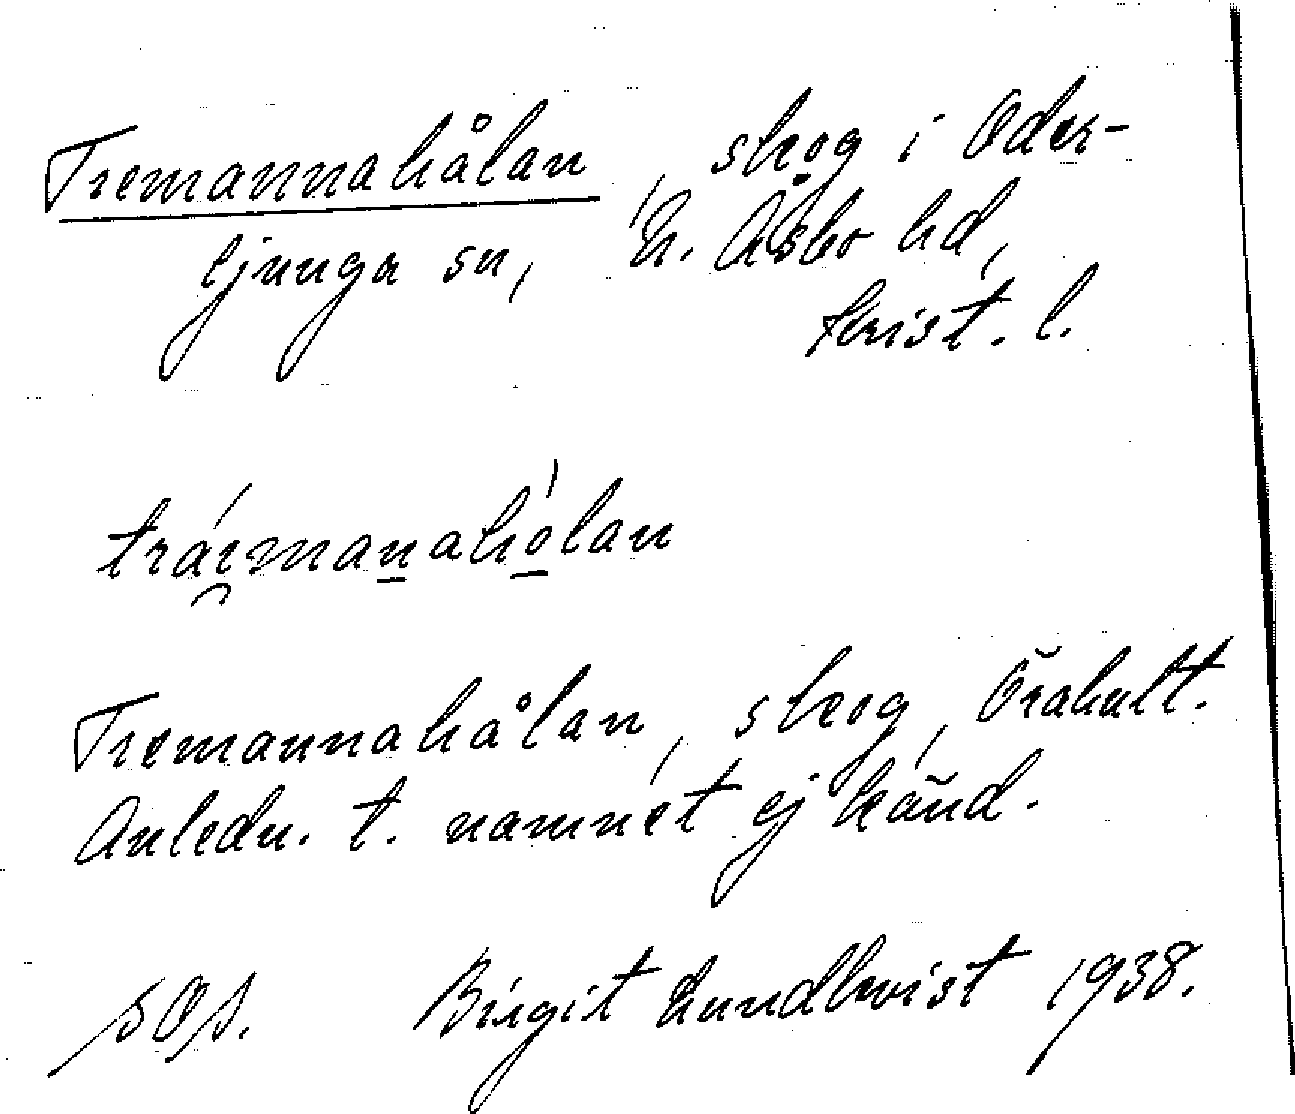 Tremannahålan, skog i Oder-
ljunga sn, N. Åsbo hd,
Krist. l.
tráimanahólan
Tremannahålan, skog, Örahult.
Anledn. t. namnet ej känd.
Birgit Lundkvist 1938.